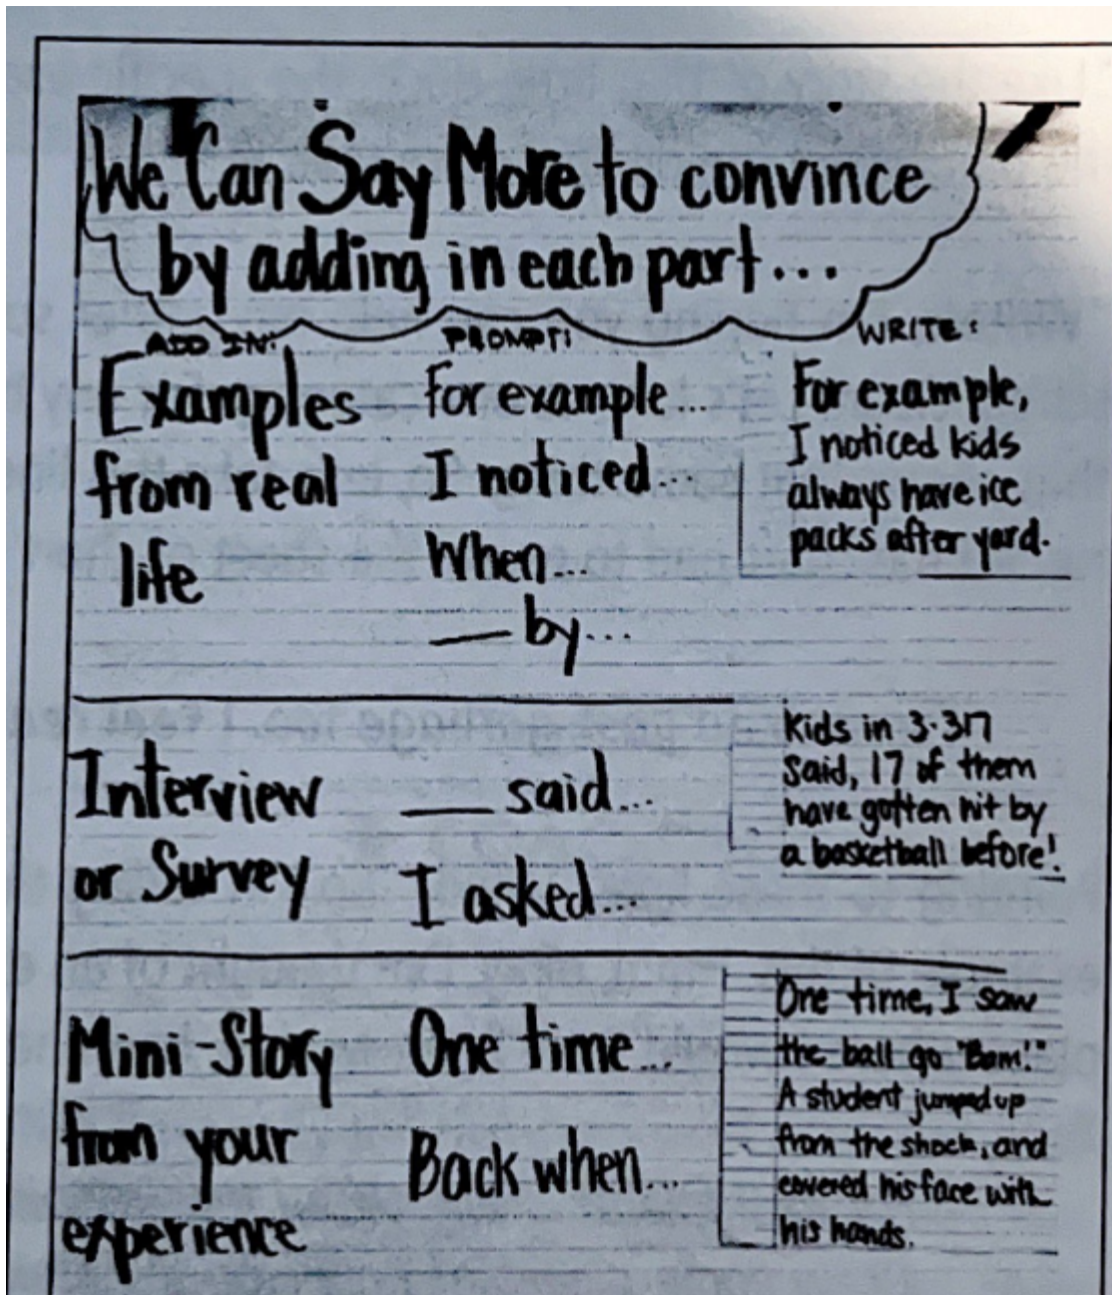 We Can Say More to convince
by adding in each part...
ADD IN:
Examples
from real
life
PROMPT:
For example...
I noticed...
When...
— by...
WRITE:
For example,
I noticed kids
always have ice
packs after yard.
Interview
or Survey
— said...
I asked...
Kids in 3-317
said, 17 of them
have gotten hit by
a basketball before!
Mini-Story
from your
experience
One time...
Back when...
One time, I saw
the ball go "Bam!"
A student jumped up
from the shock, and
covered his face with
his hands.